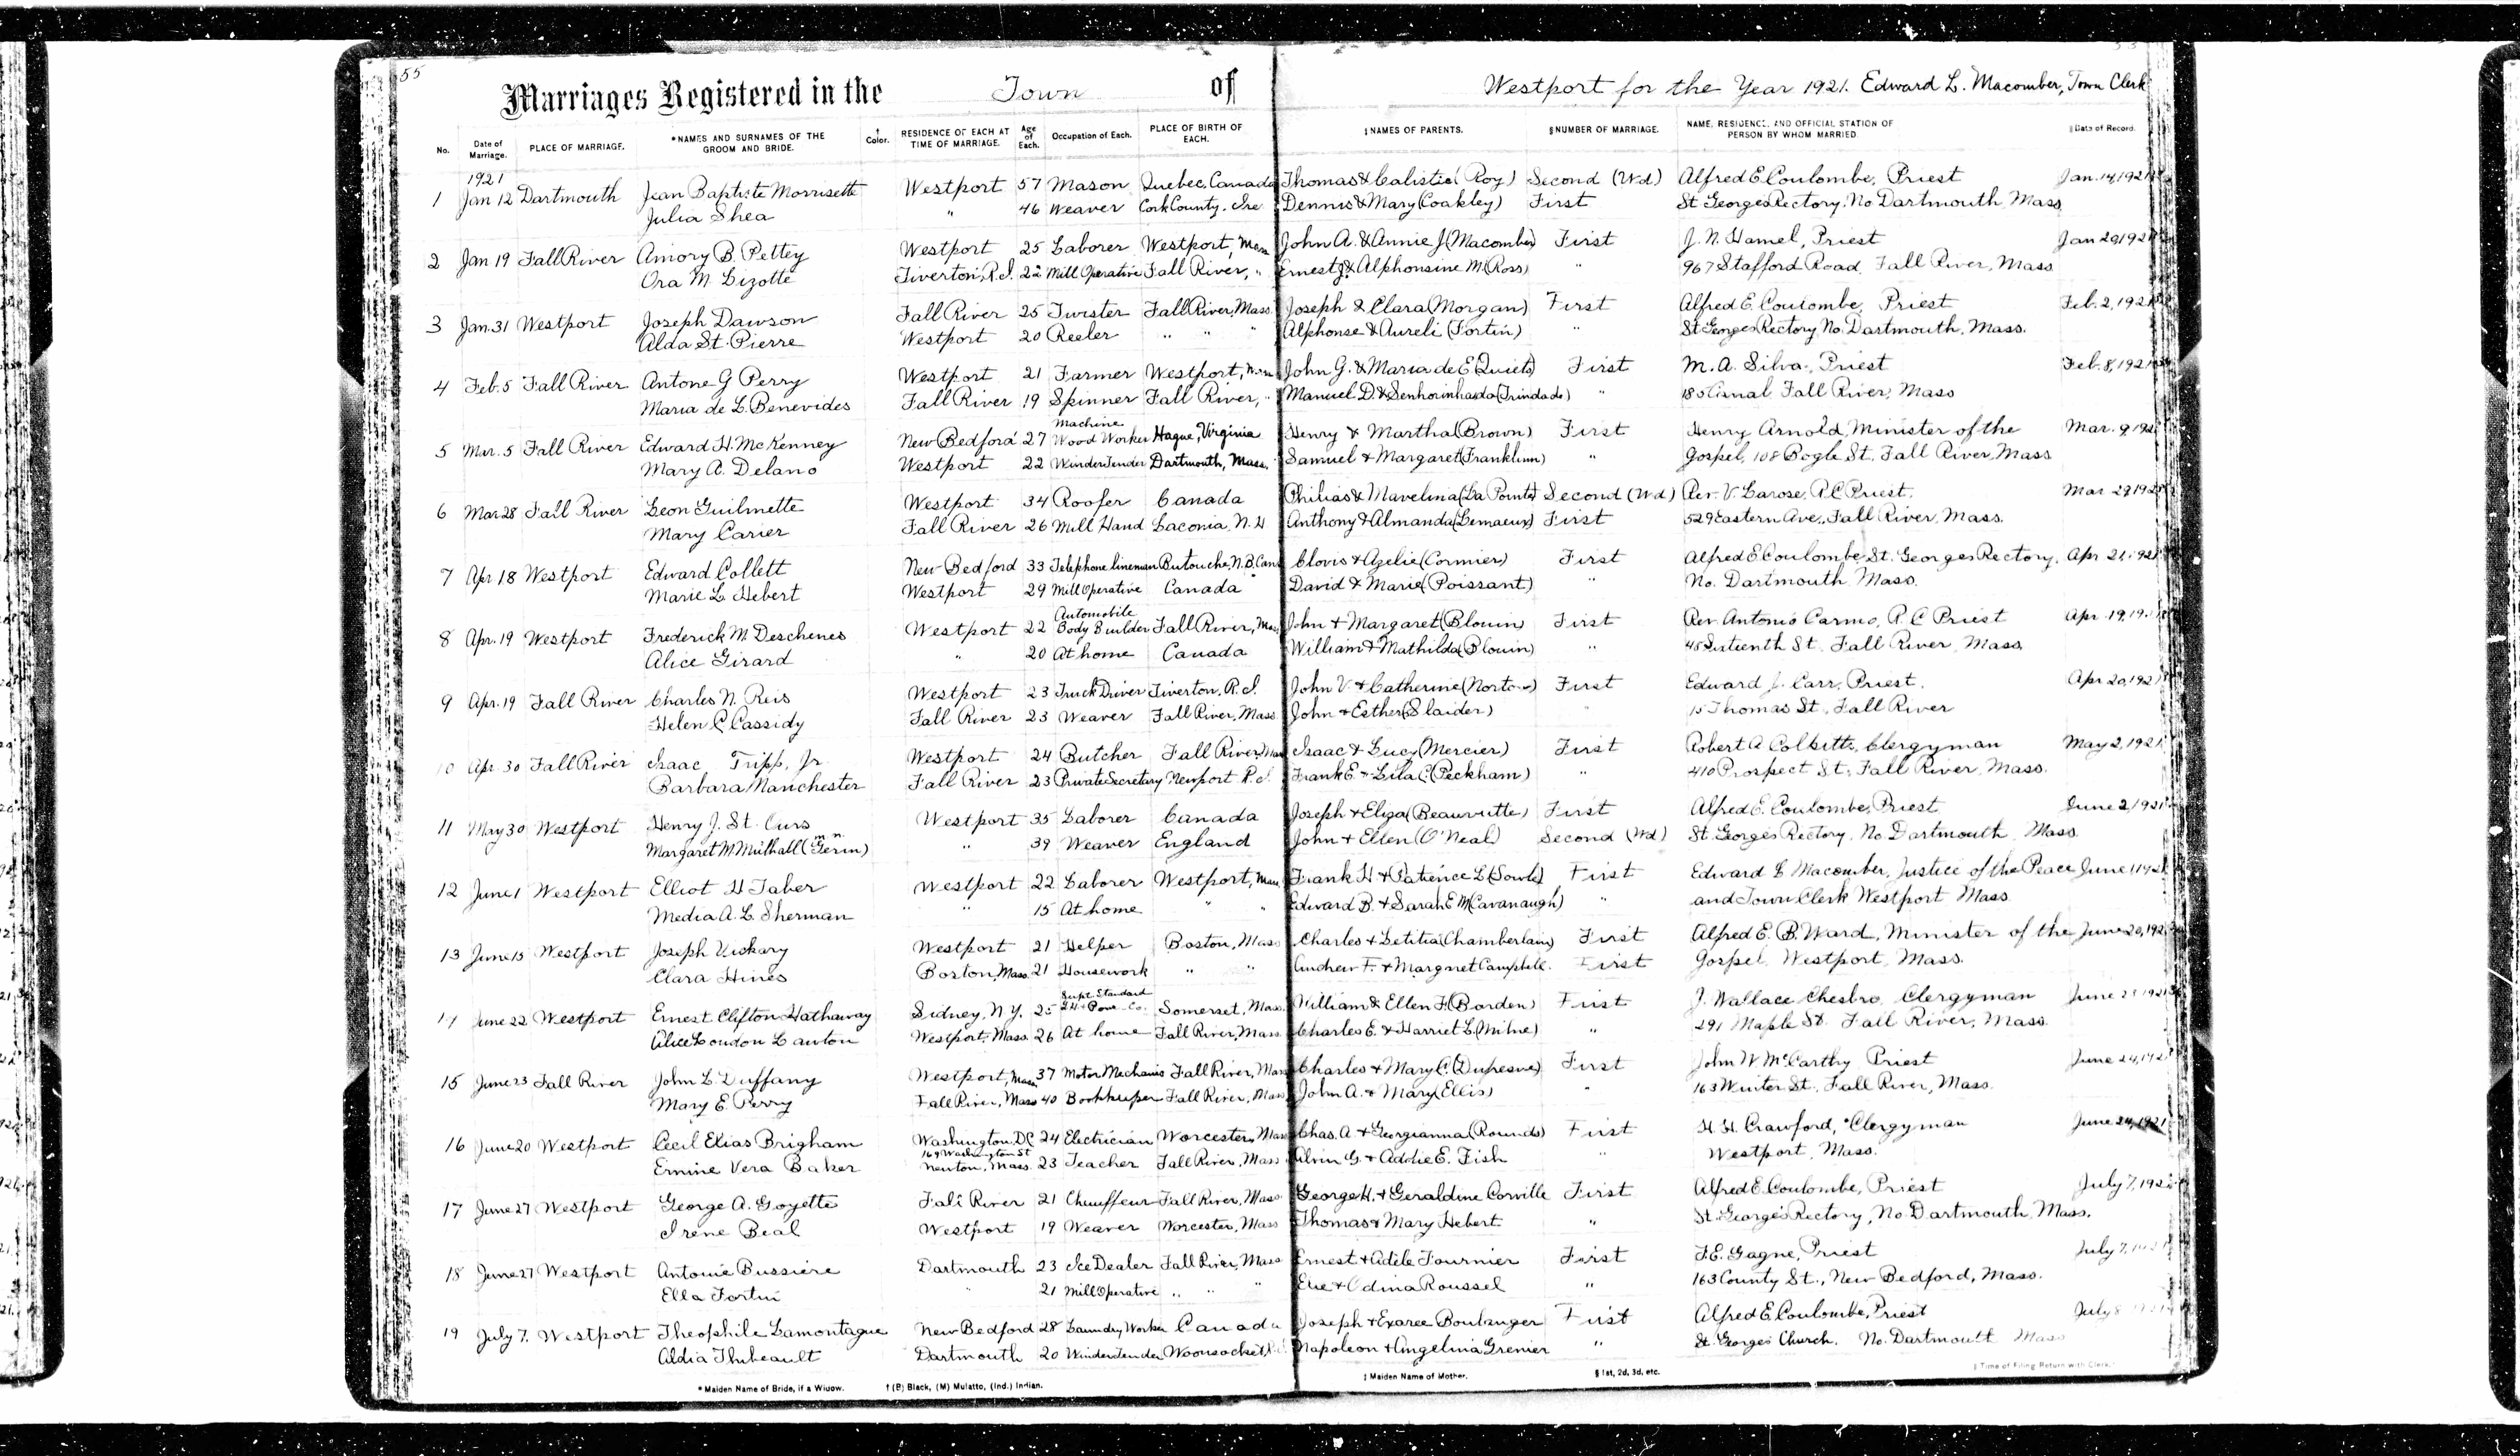 55
Marriages Registered in the Town of Westport for the Year 1921. Edward L. Macomber, Town Clerk
No. Date of Marriage. PLACE OF MARRIAGE. *NAMES AND SURNAMES OF THE GROOM AND BRIDE. † Color. RESIDENCE OF EACH AT TIME OF MARRIAGE. Age of Each. Occupation of Each. PLACE OF BIRTH OF EACH. ‡NAMES OF PARENTS. §NUMBER OF MARRIAGE. NAME, RESIDENCE, AND OFFICIAL STATION OF PERSON BY WHOM MARRIED. ‖Date of Record.
1921
1 Jan 12 Dartmouth Jean Baptiste Morrisette Westport 57 Mason Quebec, Canada Thomas & Calistie (Roy) Second (Wd) Alfred E Coulombe, Priest Jan. 14, 1921
Julia Shea " 46 Weaver Cork County, Ire Dennis & Mary (Coakley) First St Georges Rectory, No Dartmouth, Mass
2 Jan 19 Fall River Amory B. Pettey Westport 25 Laborer Westport, Mass John A. & Annie J (Macomber) First J. N. Hamel, Priest Jan 29 1921
Ora M Lizotte Tiverton, R.I. 22 Mill Operative Fall River, " Ernest J. & Alphonsine M. (Ross) " 967 Stafford Road, Fall River, Mass
3 Jan. 31 Westport Joseph Dawson Fall River 25 Twister Fall River, Mass. Joseph & Clara (Morgan) First Alfred E. Coulombe, Priest Feb. 2, 1921
Alda St. Pierre Westport 20 Reeler " " " Alphonse & Aureli (Fortin) " St Georges Rectory No. Dartmouth, Mass.
4 Feb. 5 Fall River Antone G Perry Westport 21 Farmer Westport, Mass John G. & Maria de E (Quiets) First M. A. Silva, Priest Feb. 8, 1921
Maria de L. Benevides Fall River 19 Spinner Fall River, " Manuel D. & Senhorinha da (Trindade) " 185 Canal Fall River, Mass
5 Mar. 5 Fall River Edward H. McKenney New Bedford 27 Machine Wood Worker Hague, Virginia Henry & Martha (Brown) First Henry Arnold, Minister of the Mar. 9, 192
Mary A. Delano Westport 22 Winder Tender Dartmouth, Mass. Samuel & Margaret (Franklinn) " Gospel, 108 Bogle St, Fall River, Mass
6 Mar 28 Fall River Leon Guilmette Westport 34 Roofer Canada Philias & Mavelina (La Pointe) Second (Wd) Rev. V. Larose, R C Priest. Mar 29 192
Mary Carier Fall River 26 Mill Hand Laconia, N. H Anthony & Almanda (Lemaeux) First 529 Eastern Ave., Fall River, Mass.
7 Apr 18 Westport Edward Collett New Bedford 33 Telephone lineman Butouche, N.B. Can Clovis & Azelie (Cormier) First Alfred E Coulombe, St. Georges Rectory, Apr 21, 1921
Marie L. Hebert Westport 29 Mill Operative Canada David & Marie (Poissant) " No. Dartmouth, Mass.
8 Apr. 19 Westport Frederick M. Deschenes Westport 22 Automobile Body Builder Fall River, Mass John & Margaret (Blouin) First Rev. Antonio Carmo, R. C Priest Apr. 19, 19
Alice Girard " 20 At home Canada William & Mathilda (Blouin) " 45 Sixteenth St. Fall River, Mass.
9 Apr. 19 Fall River Charles N. Reis Westport 23 Truck Driver Tiverton, R.I. John V. & Catherine (Norton) First Edward J. Carr, Priest. Apr 20, 1921
Helen C Cassidy Fall River 23 Weaver Fall River, Mass. John & Esther (Slaider) " 15 Thomas St., Fall River
10 Apr. 30 Fall River Isaac Tripp, Jr. Westport 24 Butcher Fall River, Mass Isaac & Lucy (Mercier) First Robert A Colbitts, Clergyman May 2, 1921
Barbara Manchester Fall River 23 Private Secretary Newport R.I. Frank E. & Lila C. (Peckham) " 410 Prospect St., Fall River, Mass.
11 May 30 Westport Henry J. St. Ours Westport 35 Laborer Canada Joseph & Eliza (Beaurutte) First Alfred E. Coulombe, Priest June 2, 1921
Margaret M. Mulhall (m.n. Gerin) " 39 Weaver England John & Ellen (O'Neal) Second (Wd) St. Georges Rectory, No Dartmouth, Mass.
12 June 1 Westport Elliot H Taber Westport 22 Laborer Westport, Mass Frank H & Patience L (Sowle) First Edward L Macomber, Justice of the Peace June 1 1921
Media A. L. Sherman " 15 At home " " Edward B. & Sarah E M (Cavanaugh) " and Town Clerk Westport Mass.
13 June 15 Westport Joseph Vickary Westport 21 Helper Boston, Mass Charles & Letitia (Chamberlain) First Alfred E. B. Ward, Minister of the June 20, 192
Clara Hines Boston, Mass. 21 Housework " " Andrew F. & Margaret Campbell. First Gospel, Westport, Mass.
14 June 22 Westport Ernest Clifton Hathaway Sidney, N.Y. 25 Supt. Standard Somerset, Mass. William & Ellen F. (Borden) First J. Wallace Chesbro, Clergyman June 23 1921
Alice Loudon Lawton Westport, Mass. 26 At home Fall River, Mass. Charles E. & Harriet L. (Milne) " 291 Maple St. Fall River, Mass.
15 June 23 Fall River John L. Duffany Westport, Mass 37 Motor Mechanic Fall River, Mass Charles & Mary C. (Dufresne) First John W. McCarthy Priest June 24, 1921
Mary E. Perry Fall River, Mass 40 Bookkeeper Fall River, Mass John A. & Mary (Ellis) " 163 Winter St., Fall River, Mass.
16 June 20 Westport Cecil Elias Brigham Washington, D.C 24 Electrician Worcester, Mass Chas. A. & Georgianna (Rounds) First H. H. Crawford, Clergyman June 24, 1921
Ermine Vera Baker 169 Washington St Newton, Mass. 23 Teacher Fall River, Mass Alvin G. & Addie E. Fish " Westport, Mass.
17 June 27 Westport George A. Goyette Fall River 21 Chauffeur Fall River, Mass. George H. & Geraldine Corville First Alfred E. Coulombe, Priest July 7, 192
Irene Beal Westport 19 Weaver Worcester, Mass Thomas & Mary Hebert " St. George's Rectory, No. Dartmouth, Mass.
18 June 27 Westport Antonie Bussiere Dartmouth 23 Ice Dealer Fall River, Mass Ernest & Adele Fournier First F. E. Gagne, Priest July 7, 1921
Ella Fortin " 21 Mill Operative " " " Elie & Odina Roussel " 163 County St., New Bedford, Mass.
19 July 7. Westport Theophile Lamontague New Bedford 28 Laundry Worker Canada Joseph & Exaree Boulanger First Alfred E. Coulombe, Priest July 8
Aldia Thibeault Dartmouth 20 Winder Tender Woonsocket, R.I. Napoleon & Angelina Grenier " St. Georges Church. No. Dartmouth Mass
* Maiden Name of Bride, if a Widow. † (B) Black, (M) Mulatto, (Ind.) Indian. ‡ Maiden Name of Mother. § 1st, 2d, 3d, etc. ‖ Time of Filing Return with Clerk.